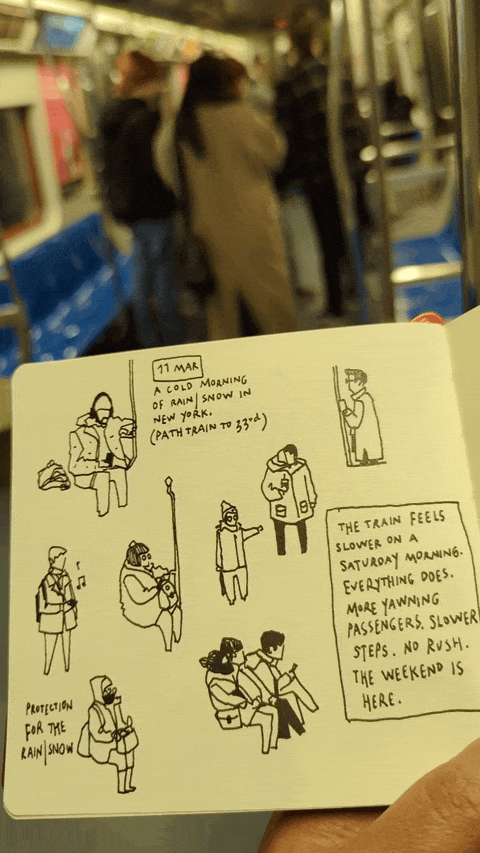 11 MAR
A COLD MORNING
OF RAIN|SNOW IN
NEW YORK.
(PATH TRAIN TO 33rd)
THE TRAIN FEELS
SLOWER ON A
SATURDAY MORNING.
EVERYTHING DOES.
MORE YAWNING
PASSENGERS. SLOWER
STEPS. NO RUSH.
THE WEEKEND IS
HERE.
PROTECTION
FOR THE
RAIN|SNOW